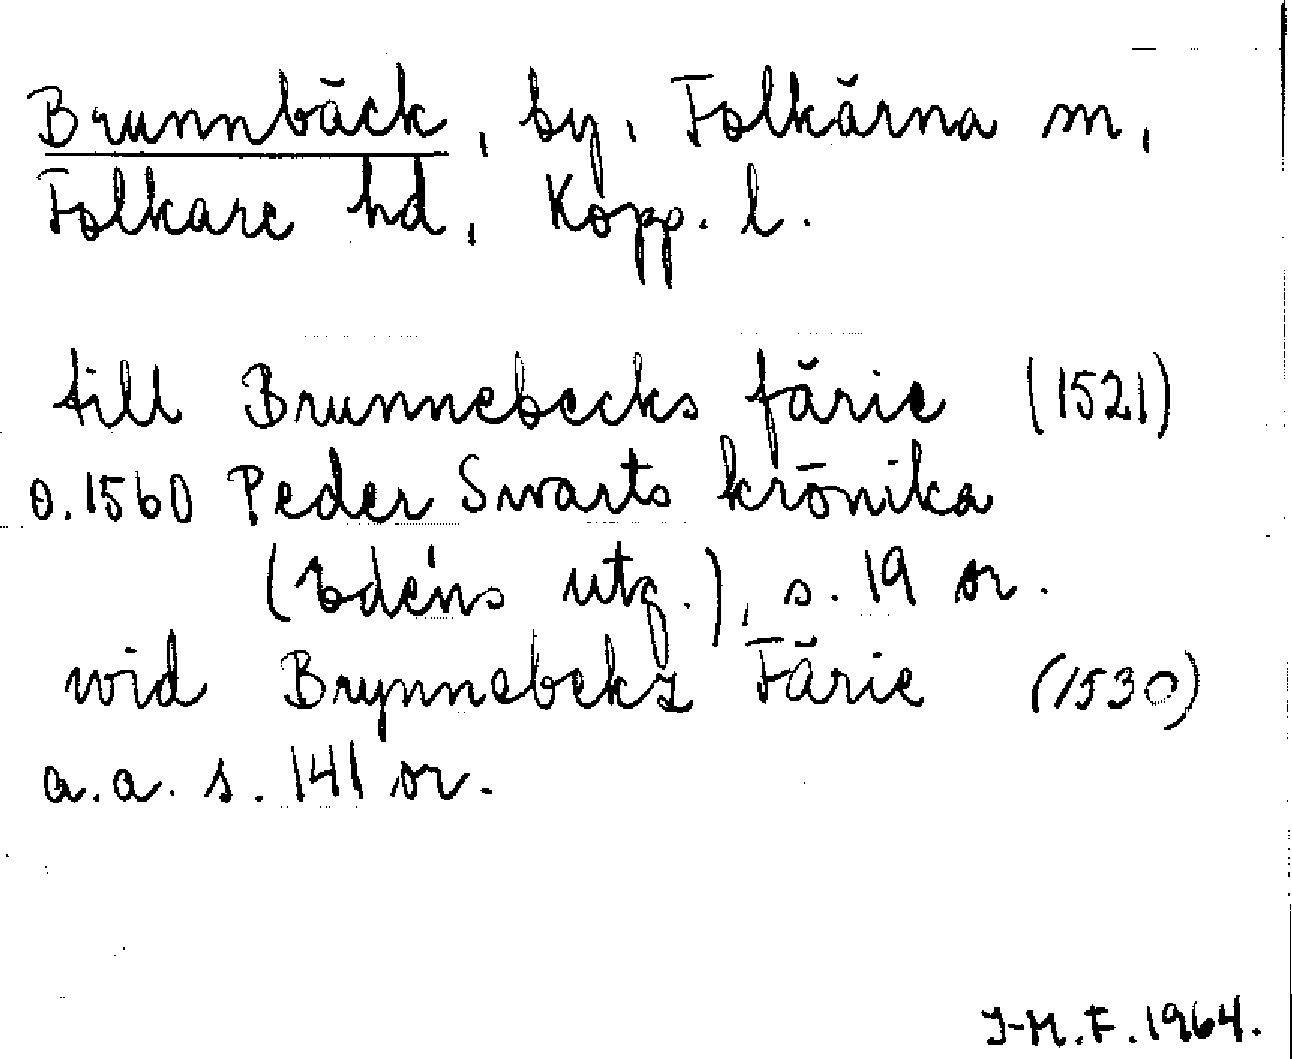 Brunnbäck, by, Folkärna sn,
Folkare hd, Kopp. l.
till Brunnebecks färie (1521)
o. 1560 Peder Swarts krönika
(Edéns utg.), s. 19 or.
wid Brynnebekz Färie (1530)
a.a. s. 141 or.
J-M.F. 1964.